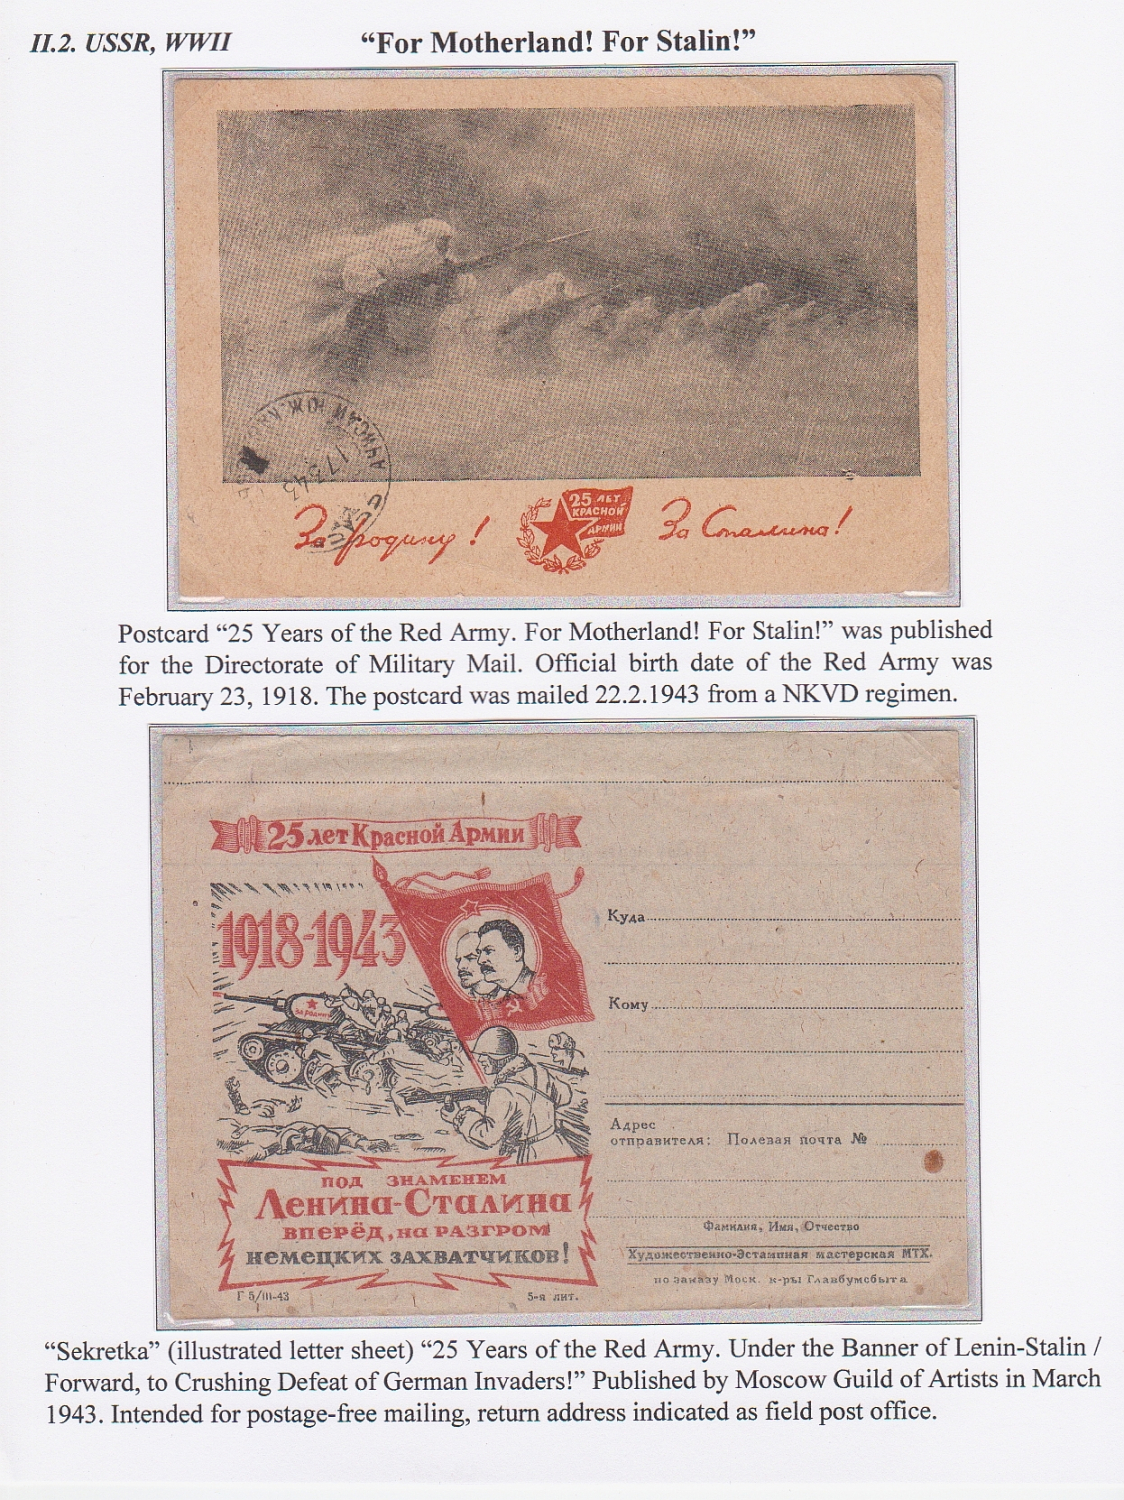 II.2. USSR, WWII
“For Motherland! For Stalin!”
17 3 43
За Родину!
25 ЛЕТ
КРАСНОЙ
АРМИИ
За Сталина!
Postcard “25 Years of the Red Army. For Motherland! For Stalin!” was published
for the Directorate of Military Mail. Official birth date of the Red Army was
February 23, 1918. The postcard was mailed 22.2.1943 from a NKVD regimen.
25 лет Красной Армии
1918-1943
За родину
ПОД ЗНАМЕНЕМ
Ленина-Сталина
ВПЕРЁД, на РАЗГРОМ
НЕМЕЦКИХ ЗАХВАТЧИКОВ!
Г 5/III-43
5-я лит.
Куда
Кому
Адрес
отправителя: Полевая почта №
Фамилия, Имя, Отчество
Художественно-Эстампная мастерская МТХ.
по заказу Моск. к-ры Главбумсбыта
“Sekretka” (illustrated letter sheet) “25 Years of the Red Army. Under the Banner of Lenin-Stalin /
Forward, to Crushing Defeat of German Invaders!” Published by Moscow Guild of Artists in March
1943. Intended for postage-free mailing, return address indicated as field post office.